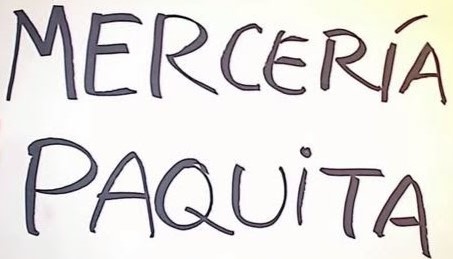 MERCERÍA
PAQUiTA